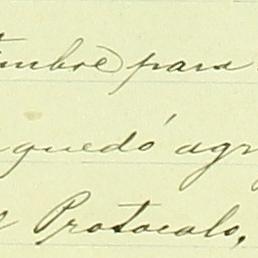 timbre para
quedó agr
Protocolo,